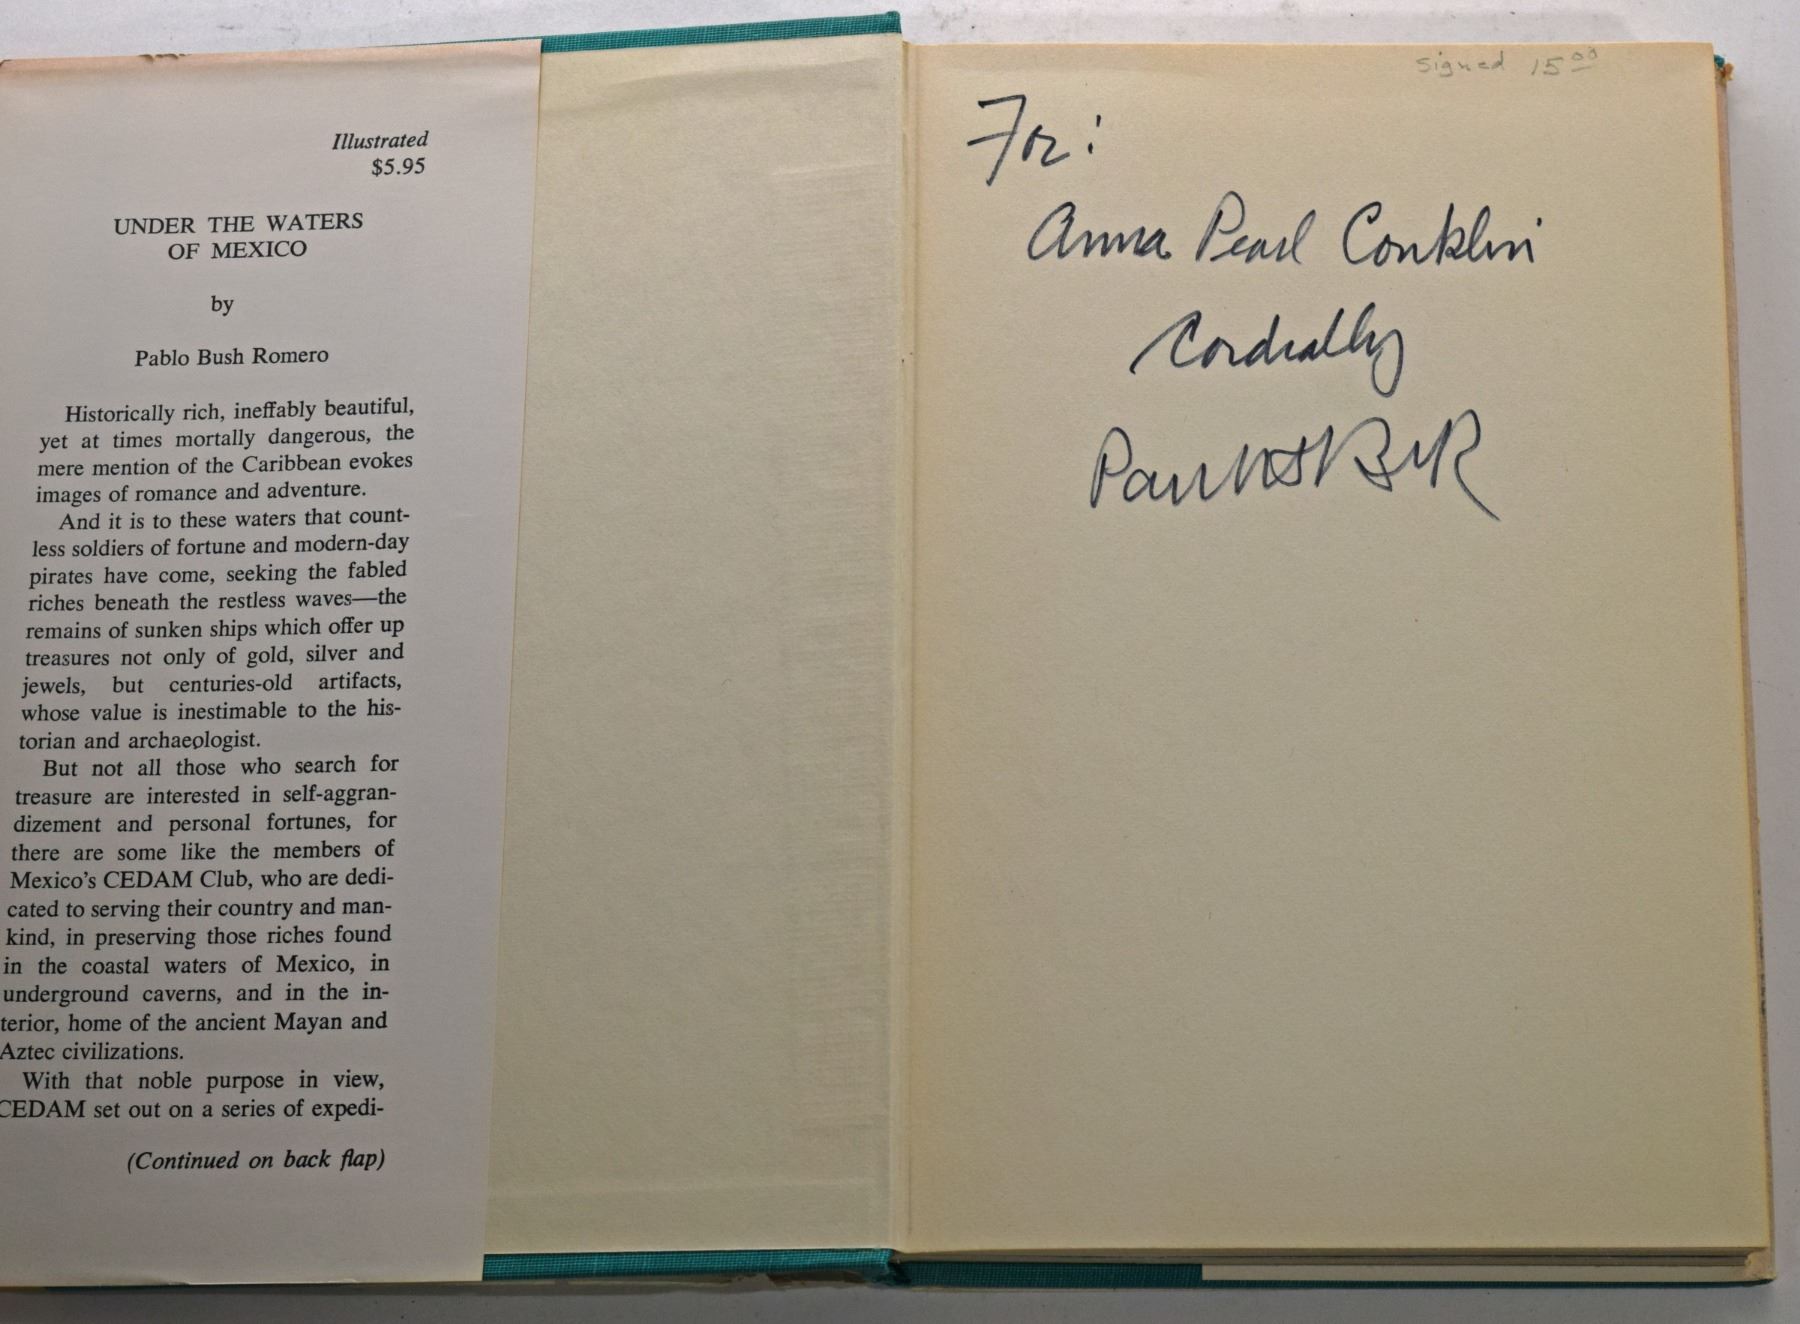 Illustrated
$5.95
UNDER THE WATERS
OF MEXICO
by
Pablo Bush Romero
Historically rich, ineffably beautiful,
yet at times mortally dangerous, the
mere mention of the Caribbean evokes
images of romance and adventure.
And it is to these waters that count-
less soldiers of fortune and modern-day
pirates have come, seeking the fabled
riches beneath the restless waves—the
remains of sunken ships which offer up
treasures not only of gold, silver and
jewels, but centuries-old artifacts,
whose value is inestimable to the his-
torian and archaeologist.
But not all those who search for
treasure are interested in self-aggran-
dizement and personal fortunes, for
there are some like the members of
Mexico's CEDAM Club, who are dedi-
cated to serving their country and man-
kind, in preserving those riches found
in the coastal waters of Mexico, in
underground caverns, and in the in-
terior, home of the ancient Mayan and
Aztec civilizations.
With that noble purpose in view,
CEDAM set out on a series of expedi-
(Continued on back flap)
signed 15 00
For:
Anna Pearl Conklin
Cordially